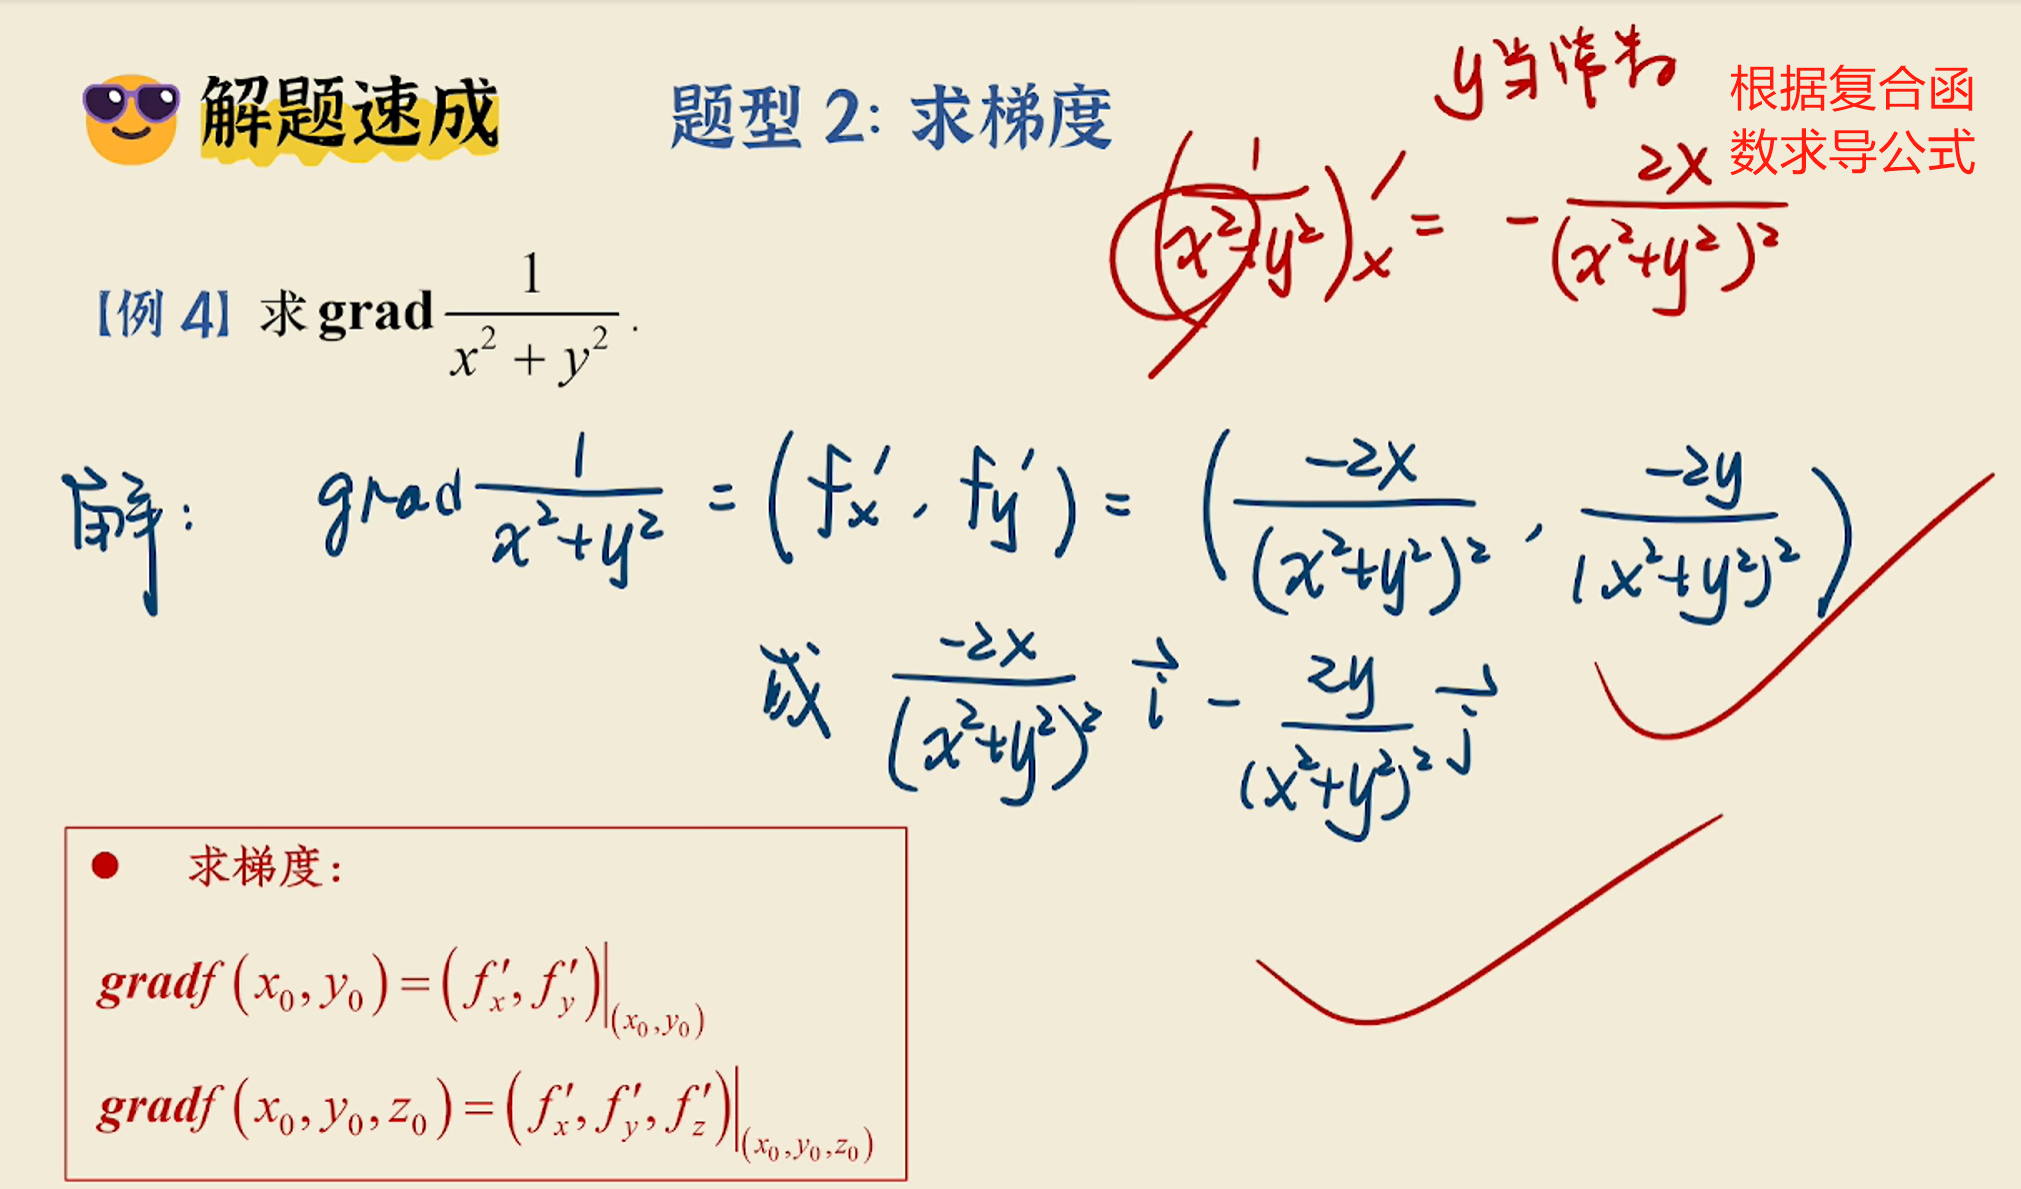 解题速成
题型 2: 求梯度
y当常数
根据复合函
数求导公式
(1/(x²+y²))′ₓ = -2x/(x²+y²)²
【例 4】求 grad 1/(x² + y²) .
解: grad 1/(x²+y²) = (fₓ′, f_y′) = (-2x/(x²+y²)², -2y/(x²+y²)²)
或 -2x/(x²+y²)² i⃗ - 2y/(x²+y²)² j⃗
● 求梯度:
gradf (x₀, y₀) = (f′ₓ, f′_y)|(x₀,y₀)
gradf (x₀, y₀, z₀) = (f′ₓ, f′_y, f′_z)|(x₀,y₀,z₀)